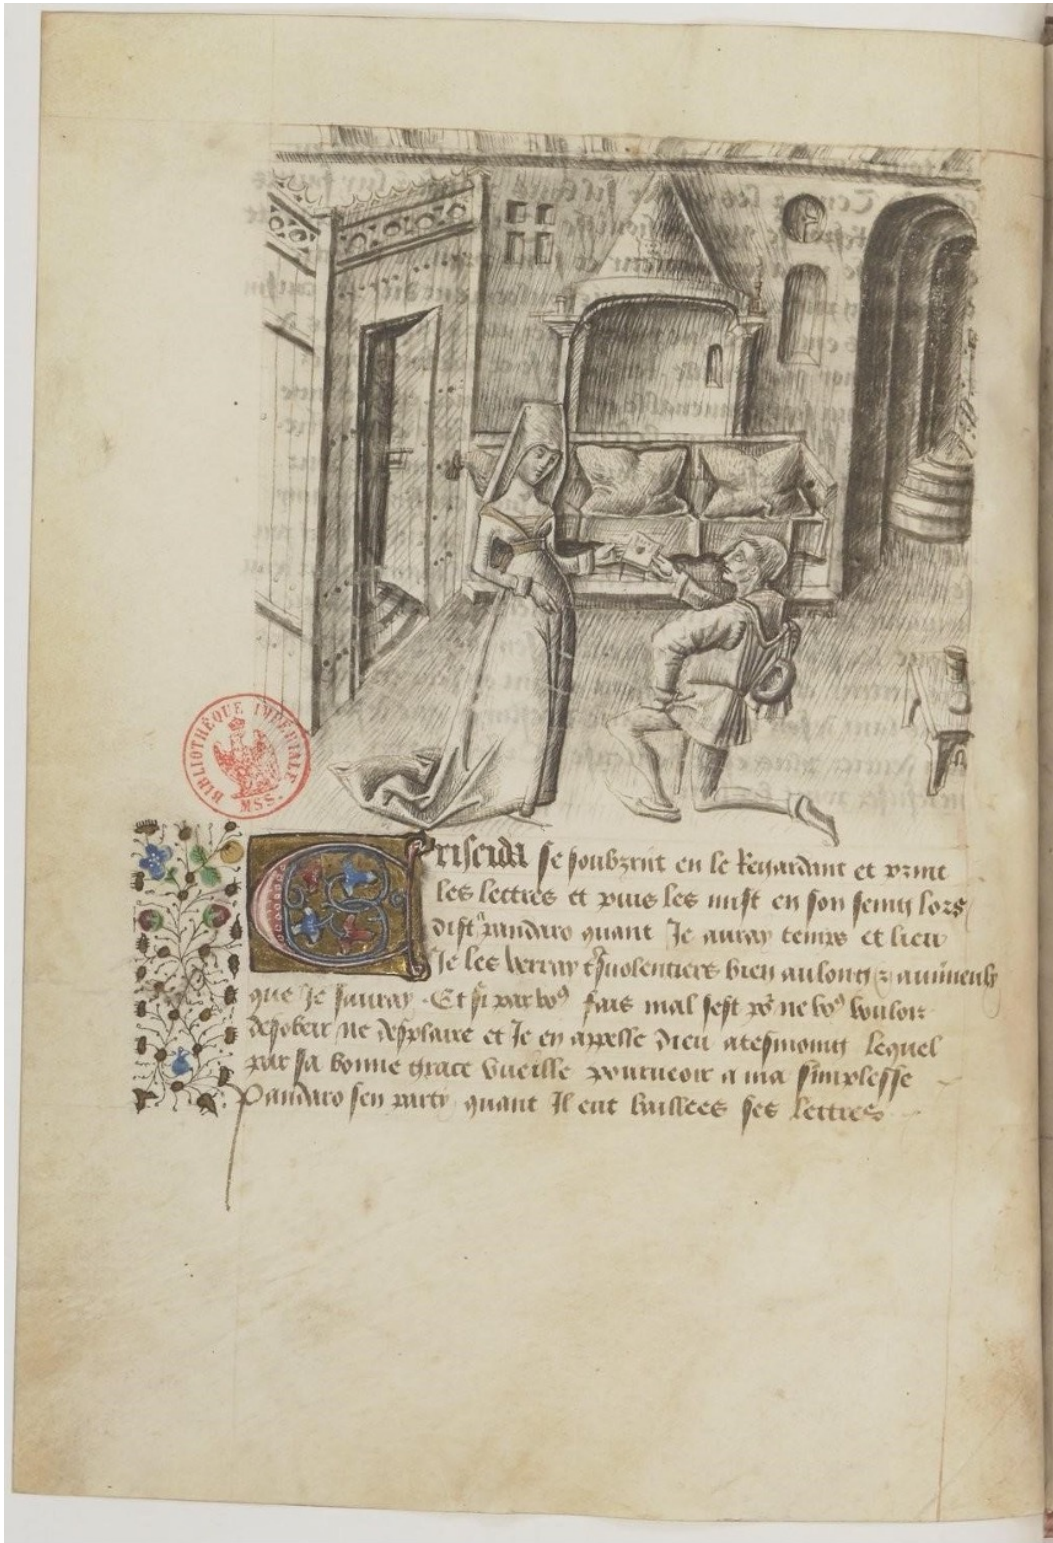 BIBLIOTHÈQUE IMPÉRIALE
MSS.
Criseida se soubzrint en le regardant et print
les lettres et puis les mist en son seing lors
dist a pandaro quant Je auray temps et lieu
Je les verray tresvolentiers bien au long au mieulx
que Je sauray. Et si par vo9 fais mal sest po ne vo9 vouloir
desobeir ne desplaire et Je en appelle dieu a tesmoing lequel
par sa bonne grace vueille pourueoir a ma simplesse
Pandaro sen parti quant Il eut baillees ses lettres